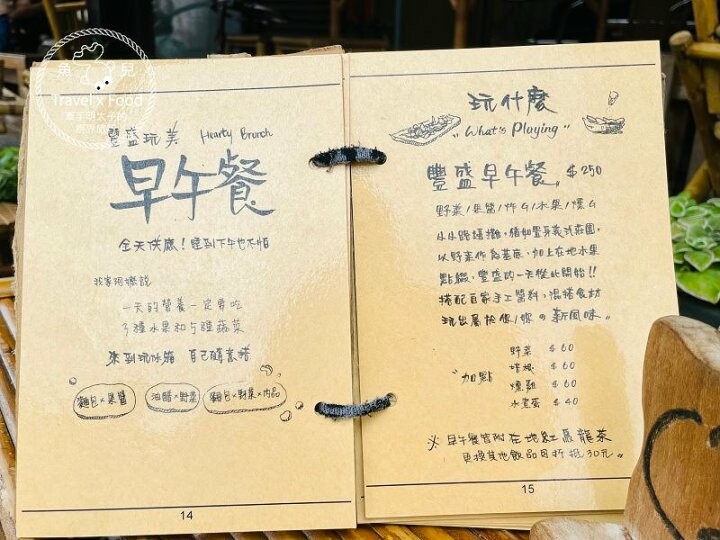 魚兒
Travel x Food
豐盛玩美 Hearty Brunch
早午餐
全天供應！睡到下午也不怕
我家阿嬤說
一天的營養一定要吃
3種水果和5種蔬菜
來到玩冰箱 自己隨意搭
麵包x果醬 油醋x野菜 麵包x野菜x肉品
14
玩什麼
"What's Playing"
豐盛早午餐 $250
以野菜作為基底，加上在地水果
點綴，豐盛的一天從此開始!!
搭配自家手工醬料，混搭食材
玩出屬於你/妳の新風味。
"加點
野菜 $60
$60
燻雞 $60
水煮蛋 $40
※ 早午餐皆附在地紅烏龍茶
更換其他飲品可折抵30元"
15